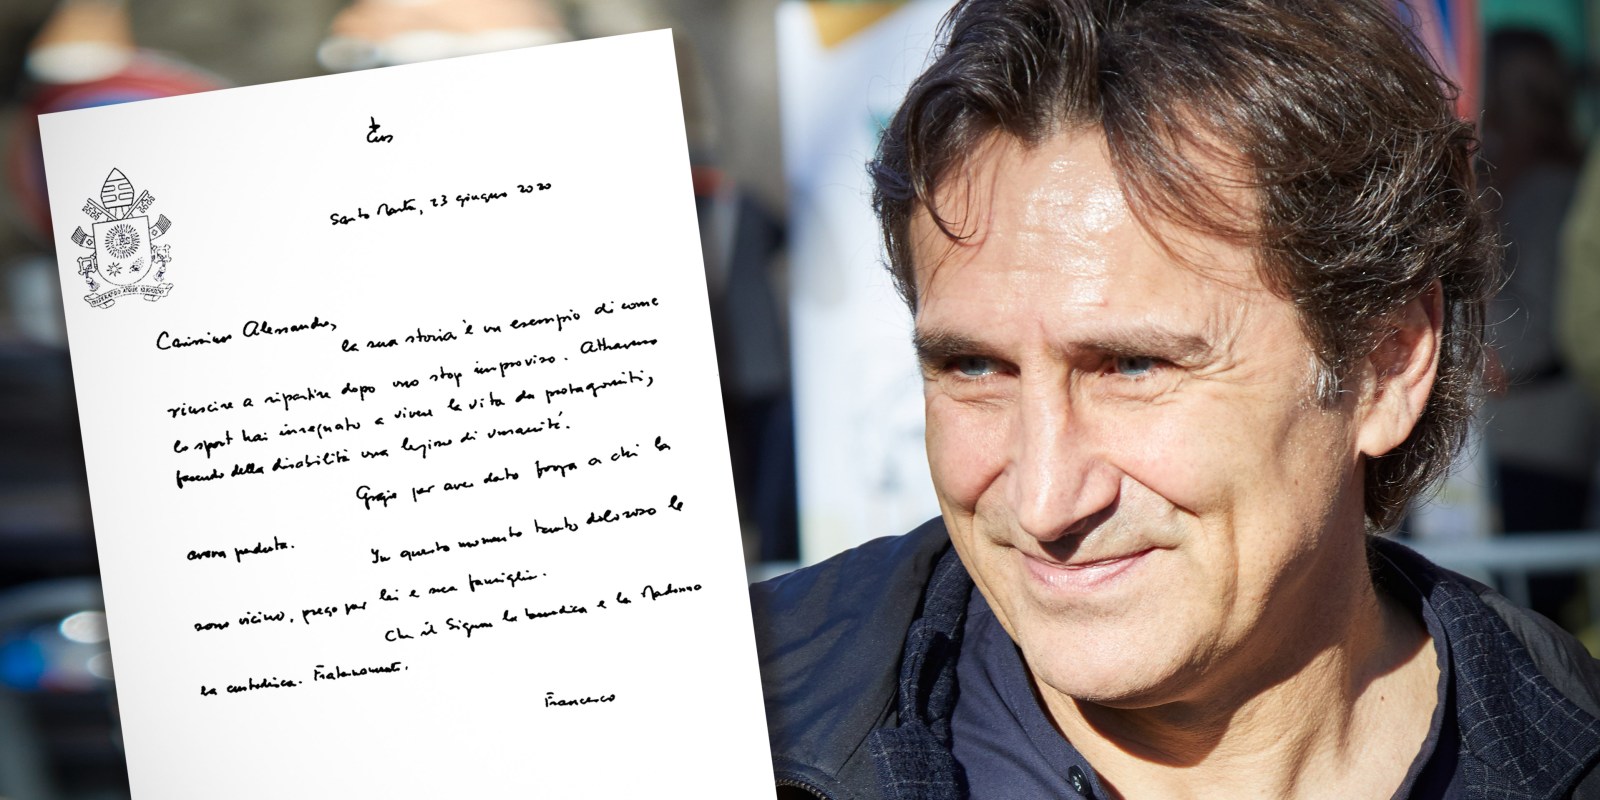 Santa Marta, 23 giugno 2020
MISERANDO ATQUE ELIGENDO
Carissimo Alessandro,
la sua storia è un esempio di come
riuscire a ripartire dopo uno stop improvviso. Attraverso
lo sport hai insegnato a vivere la vita da protagonisti,
facendo della disabilità una lezione di umanità.
Grazie per aver dato forza a chi la
aveva perduta.
In questo momento tanto doloroso le
sono vicino, prego per lei e sua famiglia.
Che il Signore la benedica e la Madonna
la custodisca. Fraternamente,
Francesco